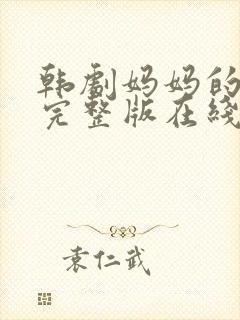 韩劇妈妈的
完整版在綫
袁仁武